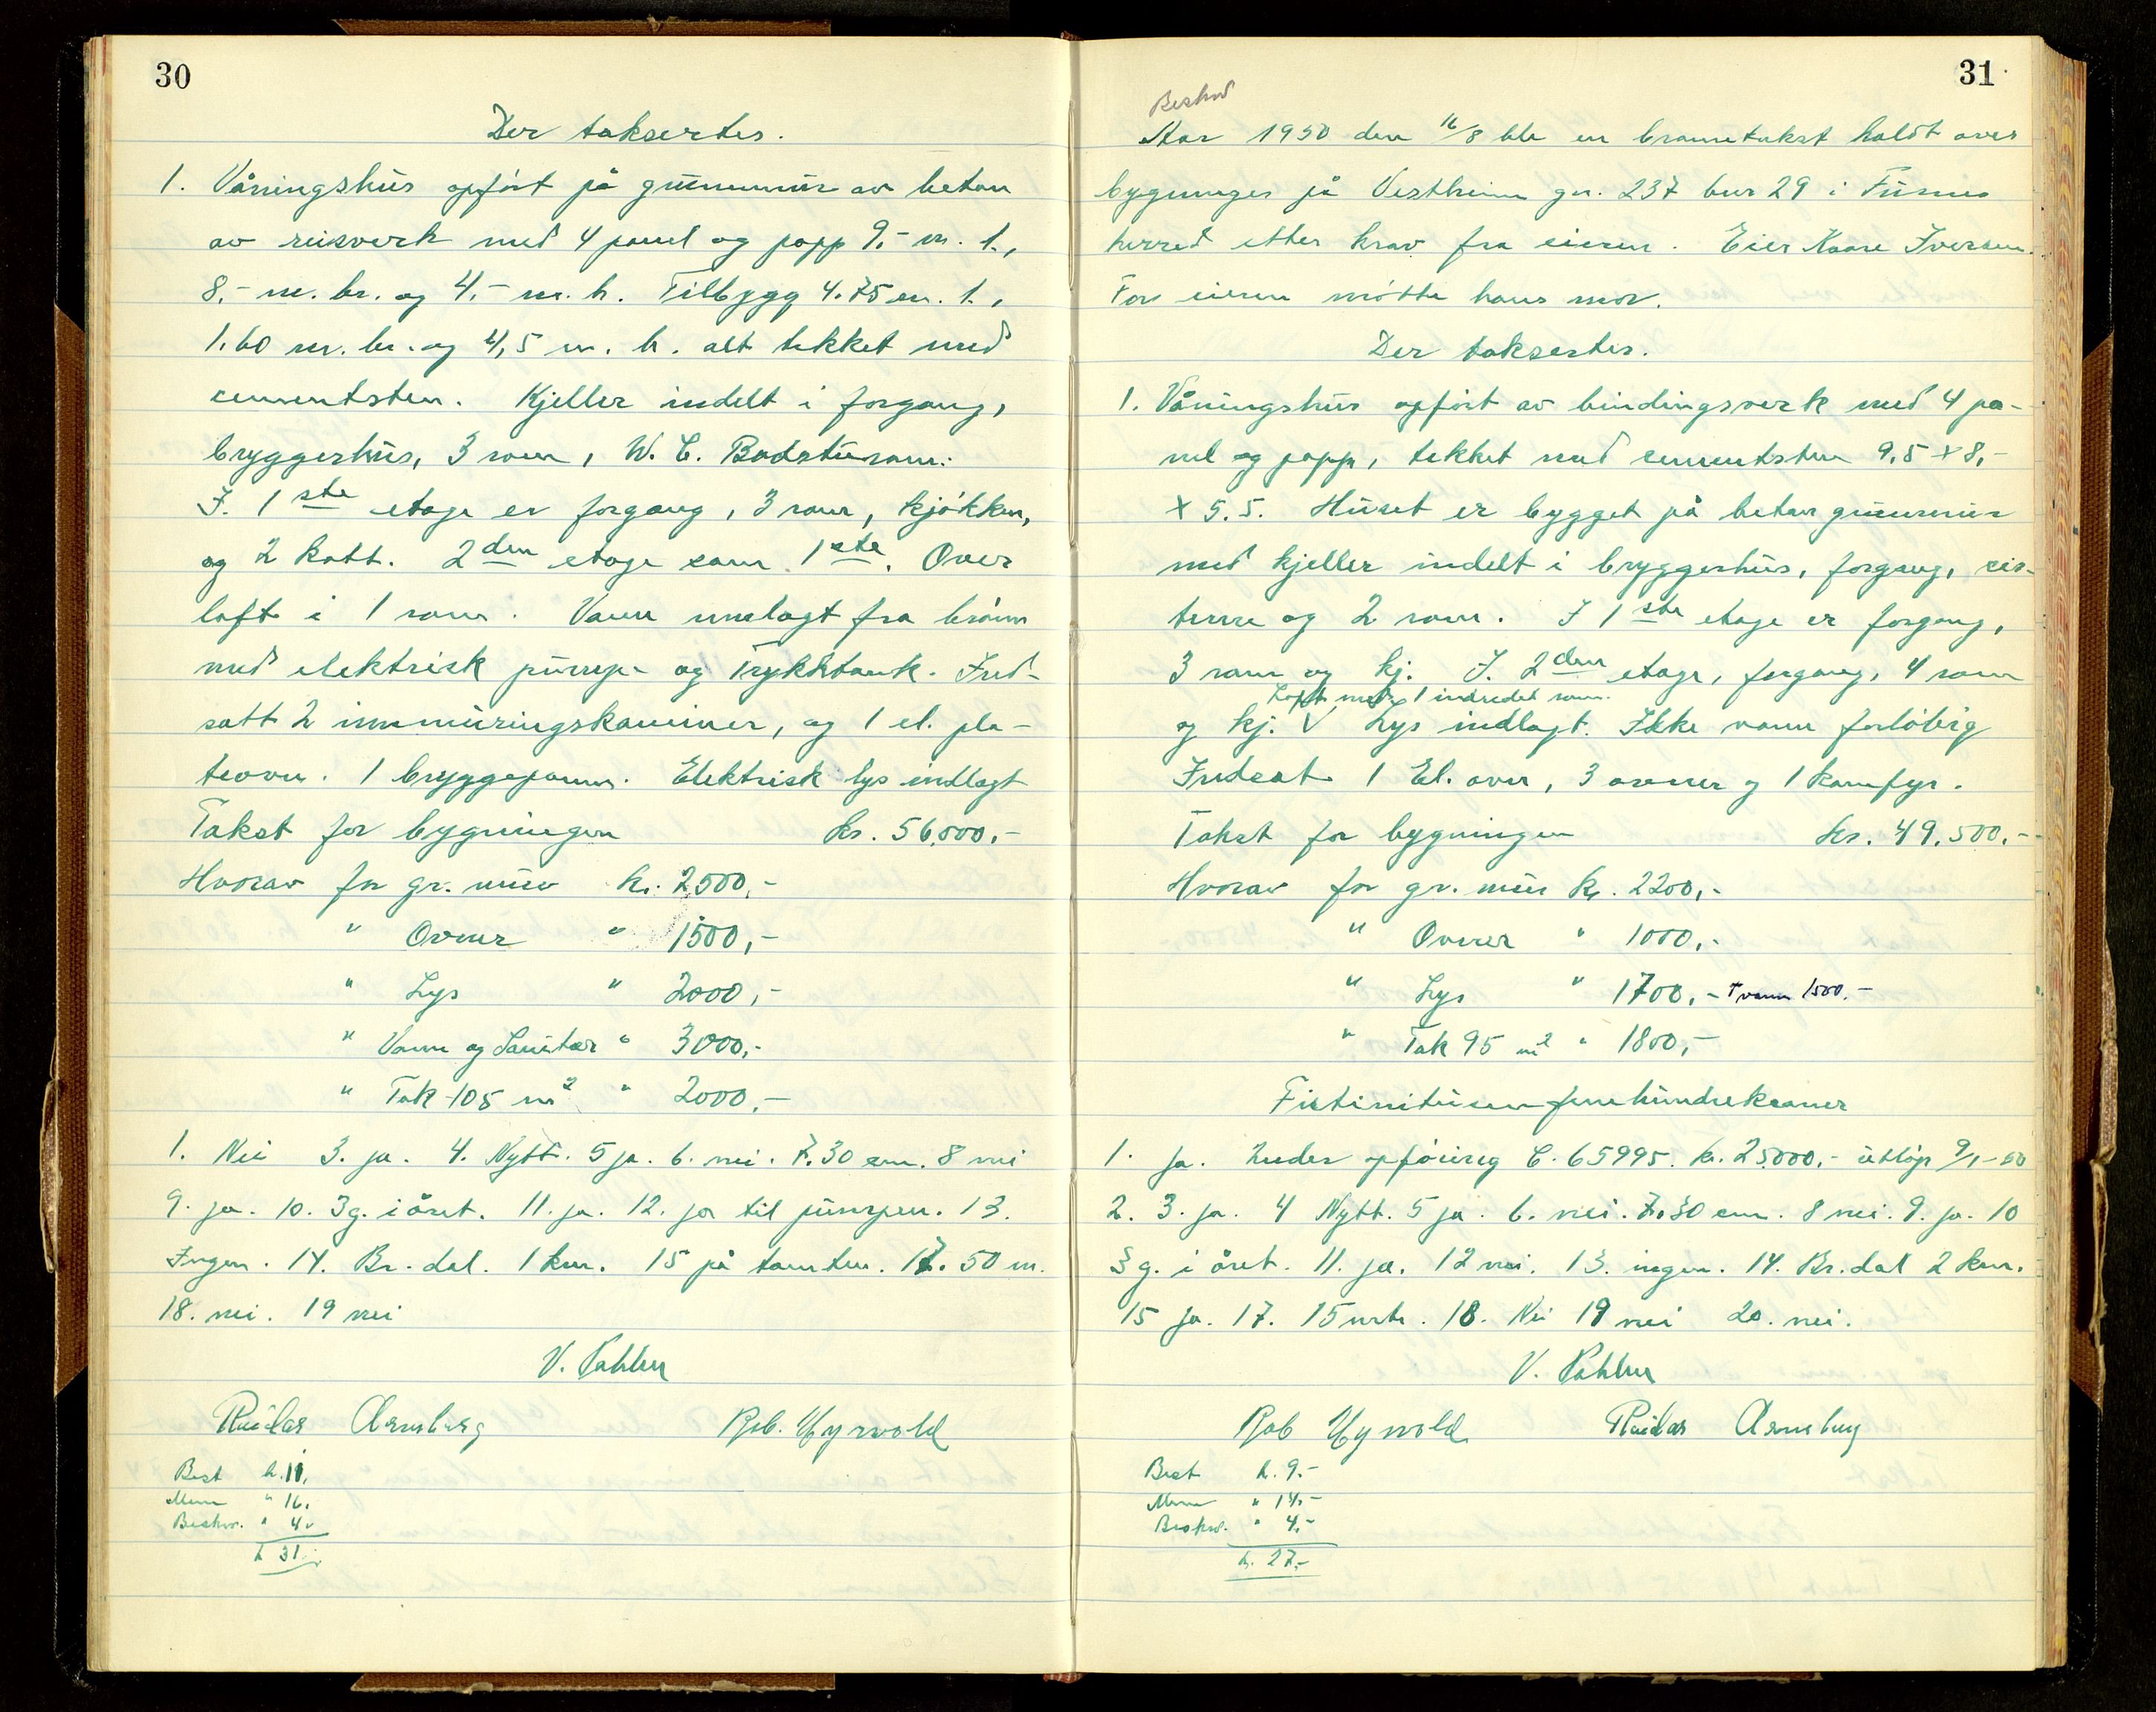 30
Der taksertes.
1. Våningshus opført på grunnmur av beton
av reisverk med 4 panel og papp 9,- m. l.,
8,- m. br. og 4,- m. h. Tilbygg 4.75 m. l.,
1.60 m. br. og 4,5 m. h. alt tekket med
cementsten. Kjeller indelt i forgang,
bryggerhus, 3 rom, W. C. Badsturom.
I. 1ste etage er forgang, 3 rom, kjøkken,
og 2 kott. 2den etage som 1ste. Over
loft i 1 rom. Vann innlagt fra brønn
med elektrisk pumpe og Trykktank. Ind-
satt 2 innmuringskaminer, og 1 el. pla-
teovn. 1 bryggepanne. Elektrisk lys indlagt
Takst for bygningen kr. 56.000,-
Hvorav for gr. mur kr. 2500,-
" Ovner " 1500,-
" Lys " 2000,-
" Vann og Sanitær " 3000,-
" Tak 105 m2 " 2000,-
1. Nei 3. ja. 4. Nytt. 5 ja. 6. nei. 7. 30 cm. 8 nei
9. ja. 10. 3 g. i året. 11. ja. 12. ja til pumpen. 13.
Ingen. 14. Br. dal. 1 km. 15 på tomten. 17. 50 m.
18. nei. 19 nei
V. Pahlen
Reidar Arnsberg Rob. Myrvold
Best k. 11,
Menn " 16,
Beskr. " 4,
k 31,-
31
Beskrd
Aar 1950 den 16/8 ble en branntakst holdt over
bygninger på Vestheim gn. 237 bnr 29 i Furnes
herred etter krav fra eieren. Eier Kaare Iversen.
For eieren møtte hans mor.
Der taksertes.
1. Våningshus opført av bindingsverk med 4 pa-
nel og papp, tekket med cementsten 9,5 x 8,-
x 5.5. Huset er bygget på betong grunnmur
med kjeller indelt i bryggerhus, forgang, cis-
terne og 2 rom. I 1ste etage er forgang,
3 rom og kj. I. 2den etage, forgang, 4 rom
Loft med 1 indredet rom.
og kj. V Lys indlagt. Ikke vann forløbig
Indsat 1 El. ovn, 3 ovner og 1 komfyr.
Takst for bygningen kr. 49.500,-
Hvorav for gr. mur kr. 2200,-
" Ovner " 1000,-
" Lys " 1700,- + vann 1500,-
" Tak 95 m2 " 1800,-
Firtinitusen femhundrekroner
1. Ja. Under opføring C. 65995. kr. 25000,- utløp 9/1-50
2. 3. ja. 4 Nytt. 5 ja. 6. nei. 7. 30 cm. 8 nei. 9. ja. 10
3 g. i året. 11. ja. 12 nei. 13. ingen. 14. Br. dal 2 km.
15 ja. 17. 15 mtr. 18. Nei 19 nei 20. nei.
V. Pahlen
Rob Myrvold Reidar Arnsberg
Best k. 9,-
Menn " 14,-
Beskr. " 4,-
k. 27,-